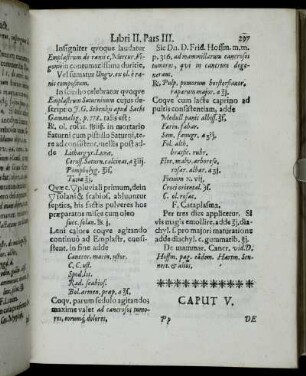 Libri II, Pars III.
297
Insigniter quoque laudatur
Emplastrum de ranis c. Mercur. Vigonis
in contumacissima duritie,
Vel sumatur Ungu. ex ol. è ranis
compositum.
In scirrho celebratur quoque
Emplastrum Saturninum cujus descriptio
J. G. Schenzius apud Santæ
Gammalog. p. 778. talis est:
℞. ol. rosar. ℔iij. in mortario
Saturni cum pistillo Saturni, tere
ad consistent. nellis post adde
Lithargyr. Lame.
Ceruss. Saturn. calcinat. a ʒiij.
Pompholyg. ℥ß.
Tutiæ ʒß.
Quæ c. ▽ pluviali primum, dein
▽ Solani & scabios. abluantur
septies, his factis pulveres hos
præparatos misces cum oleo
satur. solan. ℔ ij.
Leni calore coqve agitando
continuò ad Emplastr. consistent.
in fine adde
Cancror. macin. ustor.
C. C. ust.
Spod. lot.
Rad. scabios.
Bol. armen. præp. a ʒß.
Coqv. parum sedulo agitando;
maximè valet ad cancrosos tumores,
eorumq́; dolores,
Sic Dn. D. Frid. Hoffm. m. m.
p. 316. ad mammillarum cancrosos
tumores, qui in cancrum degenerant.
℞. Pulp. pomorum borstorfianor.
raparum major. a ʒj.
Coqve cum lacte caprino ad
pultis consistentiam, adde
Medull. panis albiss. ℥ß.
Farin. fabar.
Sem. fænugr. a ʒß.
Fol. alth.
brassic. rubr.
Flor. malv. arboresc.
rosar. albar. a ʒij.
ovum n. vij.
Croci oriental. ʒß.
C. ol. rosac.
F. Cataplasma.
Per tres dies applicetur. Si
vis magis emollire, adde a ʒij. diachyl.
s. pro majori maturatione
adde diachyl. c. gummatib. ʒj.
De mammar. Cancr. vid. D.
Hoffm. pag. eâdem. Hartm. Sennert.
& alios.
CAPUT V.
Pp
DE